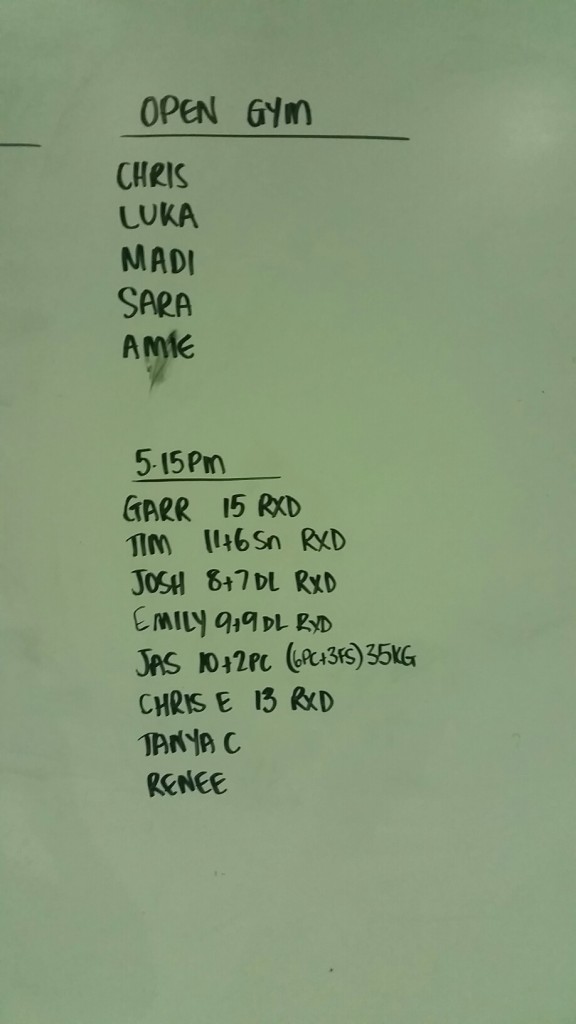 OPEN GYM
CHRIS
LUKA
MADI
SARA
AMIE
5.15PM
GARR 15 RXD
TIM 11+6 Sn RXD
JOSH 8+7 DL RXD
EMILY 9+9 DL RXD
JAS 10+2PC (6PC+3FS) 35KG
CHRIS E 13 RXD
TANYA C
RENEE